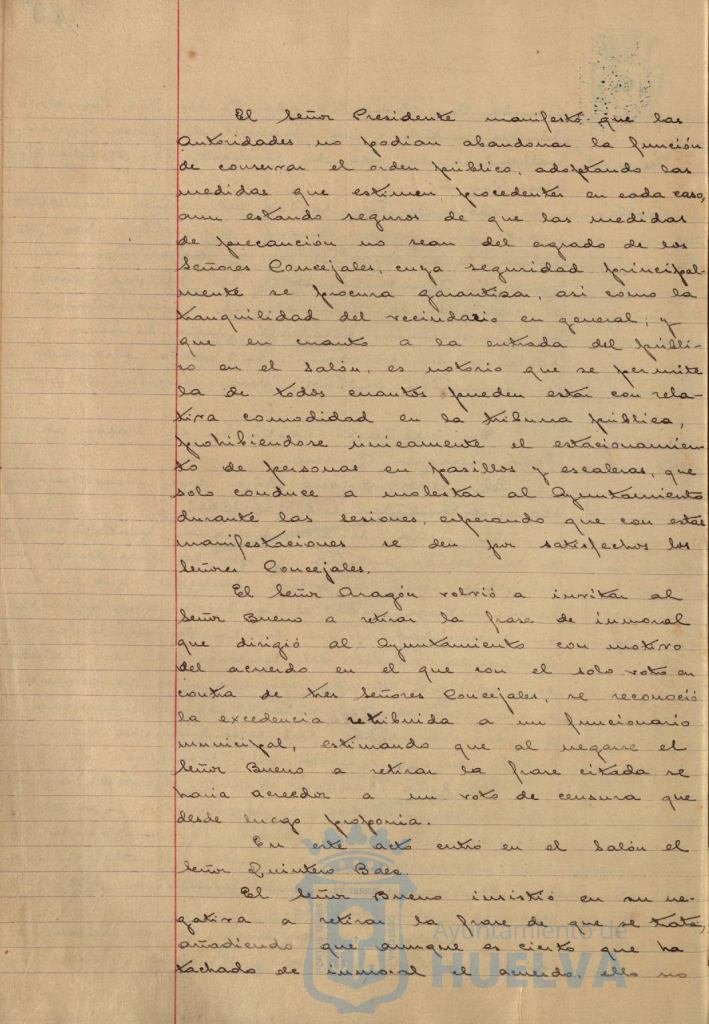 El Señor Presidente manifestó que las
Autoridades no podian abandonar la función
de conservar el orden público, adoptando las
medidas que estimen procedentes en cada caso,
aun estando seguros de que las medidas
de precaución no sean del agrado de los
Señores Concejales, cuya seguridad principal-
mente se procura garantizar, asi como la
tranquilidad del vecindario en general; y
que en cuanto a la entrada del públi-
co en el salón, es notorio que se permite
la de todos cuantos pueden estar con rela-
tiva comodidad en la tribuna pública,
prohibiendose únicamente el estacionamien-
to de personas en pasillos y escaleras, que
solo conduce a molestar al Ayuntamiento
durante las sesiones, esperando que con estas
manifestaciones se den por satisfechos los
Señores Concejales.
El Señor Aragón volvió a invitar al
Señor Bueno a retirar la frase de inmoral
que dirigió al Ayuntamiento con motivo
del acuerdo en el que con el solo voto en
contra de tres Señores Concejales, se reconoció
la excedencia retribuida a un funcionario
municipal, estimando que al negarse el
Señor Bueno a retirar la frase citada se
haria acreedor a un voto de censura que
desde luego proponia.
En este acto entró en el Salón el
Señor Quintero Baez.
El Señor Bueno insistió en su ne-
gativa a retirar la frase de que se trata,
añadiendo que aunque es cierto que ha
tachado de inmoral el acuerdo, ello no
Ayuntamiento de
HUELVA